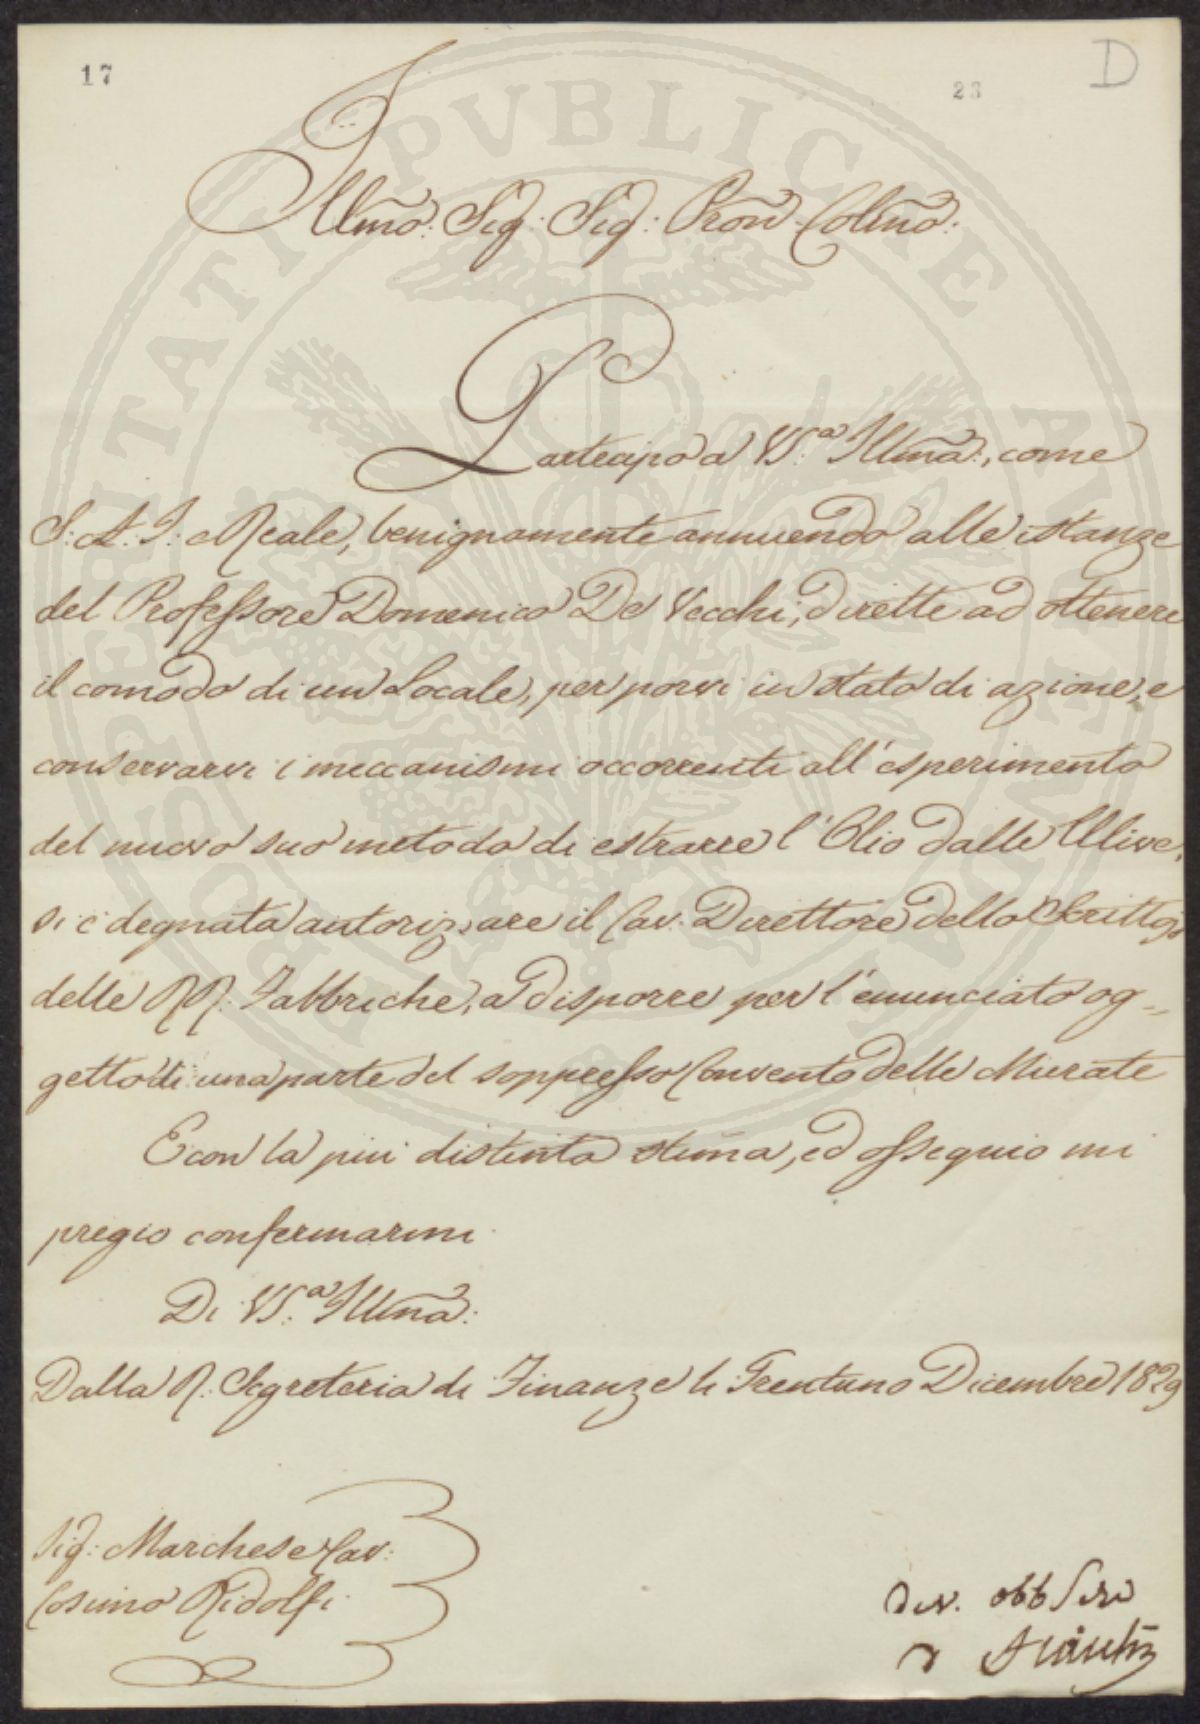 17
23
D
Illmo: Sig: Sig: Pron Colmo:
Partecipo a VS:a Illma:, come
S: A: I: Reale, benignamente annuendo alle istanze
del Professore Domenico De Vecchi, dirette ad ottenere
il comodo di un Locale, per porvi in stato di azione, e
conservarvi i meccanismi occorrenti all'esperimento
del nuovo suo metodo di estrarre l'Olio dalle Ulive,
si è degnata autorizzare il Cav: Direttore dello Scrittojo
delle RR: Fabbriche, a disporre per l'enunciato og=
getto di una parte del soppresso Convento delle Murate
E con la più distinta stima, ed ossequio mi
pregio confermarmi
Di VS:a Illma:
Dalla R: Segreteria di Finanze li Trentuno Dicembre 1829
Sig: Marchese Cav:
Cosimo Ridolfi
Dev. obb Serv
PROSPERITATI PUBLICAE AUGENDAE